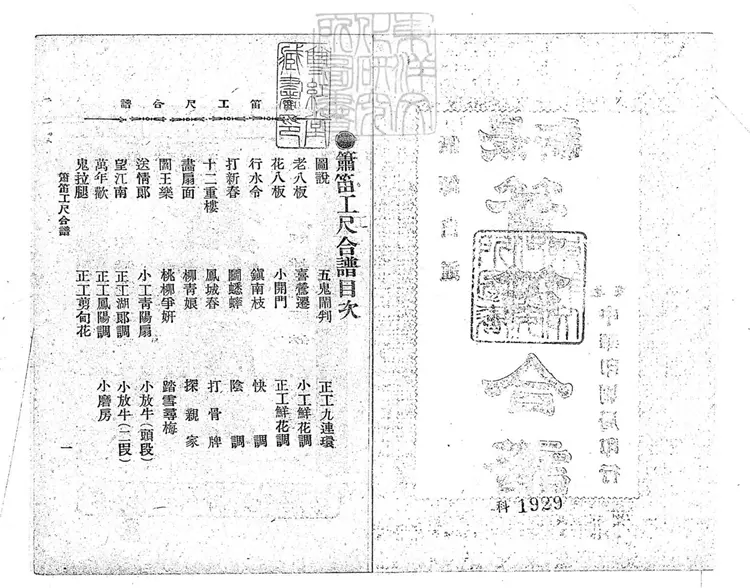 東洋文化研究所圖書
雙紅堂藏書印
合譜
中華印刷局印行
科 1929
簫笛工尺合譜
簫笛工尺合譜目次
圖說
老八板
花八板
行水令
打新春
十二重樓
畵扇面
王樂
送情郎
望江南
萬年歡
鬼拉腿
五鬼鬧判
喜鶯遷
小開門
鎖南枝
鬭蟋蟀
鳳城春
柳青娘
桃柳爭妍
小工青陽扇
正工湖郎調
正工鳳陽調
正工剪旬花
正工九連環
小工鮮花調
正工鮮花調
快調
陰調
打骨牌
探親家
踏雪尋梅
小放牛(頭段)
小放牛(二段)
小磨房
簫笛工尺合譜
一